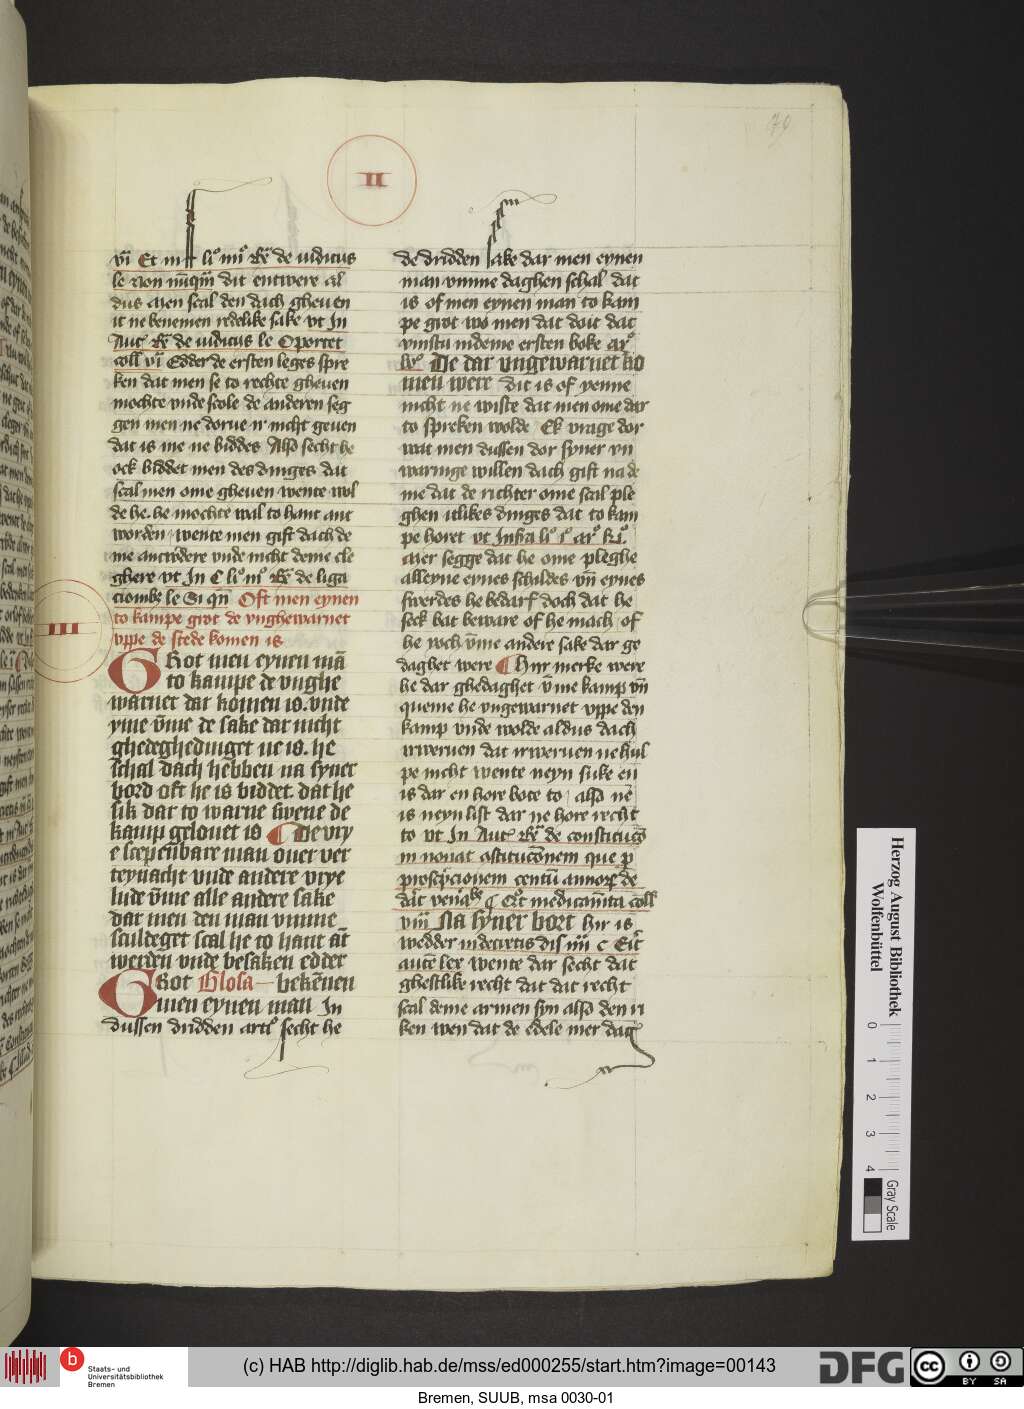 70
II
vi Et in li° iiii° Rē de iudicus
le Non nūqm dit entwere al
dus Men scal den dach gheuen
it ne benemen redelike sake vt In
Aut Rē de iudicus le Oportet
coll vi Edder de ersten leges spre
ken dat men se to rechte gheuen
mochte vnde scole de anderen seg
gen men ne dorue nicht geuen
dat is me ne biddes Also secht he
ock biddet men des dinges dat
scal men ome gheuen wente wol
de he he mochte wal to hant ant
worden wente men gift dach de
me antwrdere vnde nicht deme cle
ghere vt In C li° iii° Rē de liga
le Si qn Oft men eynen
to kampe grot de vnghewarnet
vppe de stede komen is
III
Grot men eynen mā
to kampe de vnghe
warnet dar komen is. vnde
vme de sake dar nicht
ghedeghedinget ne is. he
schal dach hebben na syner
bord oft he is biddet dat he
sik dar to warne swene de
kamp gelouet is De vry
e scepenbare man ouer ver
teynacht vnde andere vrye
lude vme alle andere sake
dar men den man vmme
sculdeget scal he to hant āt
werden vnde besaken edder
Grot Glosa bekēnen
men eynen man In
dussen dridden artc° secht he
de dridden sake dar men eynen
man vmme daghen schal dat
is of men eynen man to kam
pe grot wo men dat doit dat
vinstu indeme ersten boke ar°
De dar vngewarnet ko
men were dit is of yenne
nicht ne wiste dat men ome dar
to spreken wolde Ek vrage dor
wat men dussen dor syner vn
waringe willen dach gift na de
me dat de richter ome scal ple
ghen itlikes dinges dat to kam
pe horet vt Infra li° i° ar°
Mer segge dat he ome pleghe
alleyne eynes schildes vn eynes
swerdes he bedarf doch dat he
seck bat beware of he mach of
he noch vme andere sake dar ge
daghet were Hyr merke were
he dar ghedaghet vme kamp vn
queme he vngewarnet vppe den
kamp vnde wolde aldus dach
irweruen dat irweruen ne hul
pe nicht wente neyn suke en
is dar en hore bote to also nē
is neyn list dar ne hore recht
to vt In Aut Rē de constitucō
in nouat ostitucōnem que p
prosepcionem centū annorum de
C Et medicamita coll
viii Na syner bort hir is
wedder in decretis dis iiii c Erit
aute lex wente dar secht dat
ghestlike recht dat dat recht
scal deme armen syn also den ri
ken wen dat de edele mer dag
Herzog August Bibliothek
Wolfenbüttel
0 1 2 3 4
Gray Scale
b
Staats- und
Universitätsbibliothek
Bremen
(c) HAB http://diglib.hab.de/mss/ed000255/start.htm?image=00143
DFG
cc
BY SA
Bremen, SUUB, msa 0030-01